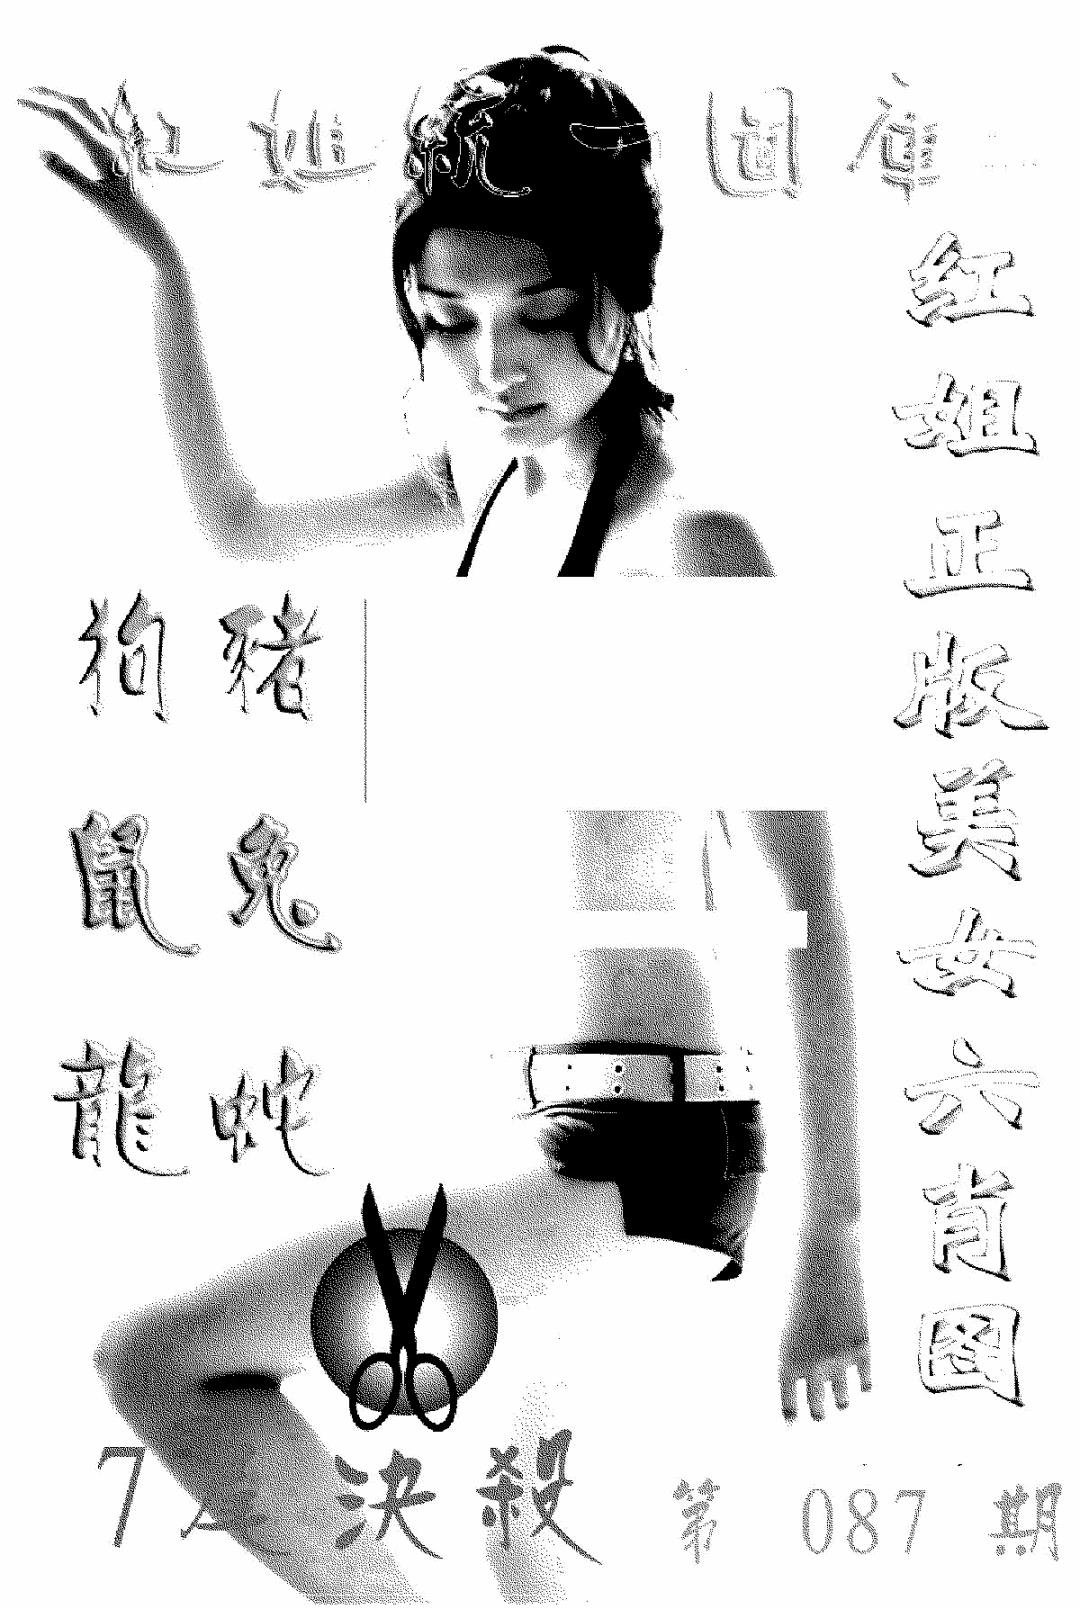 紅姐統一圖庫
紅姐正版美女六肖圖
狗豬
鼠兔
龍蛇
7尾決殺
第087期